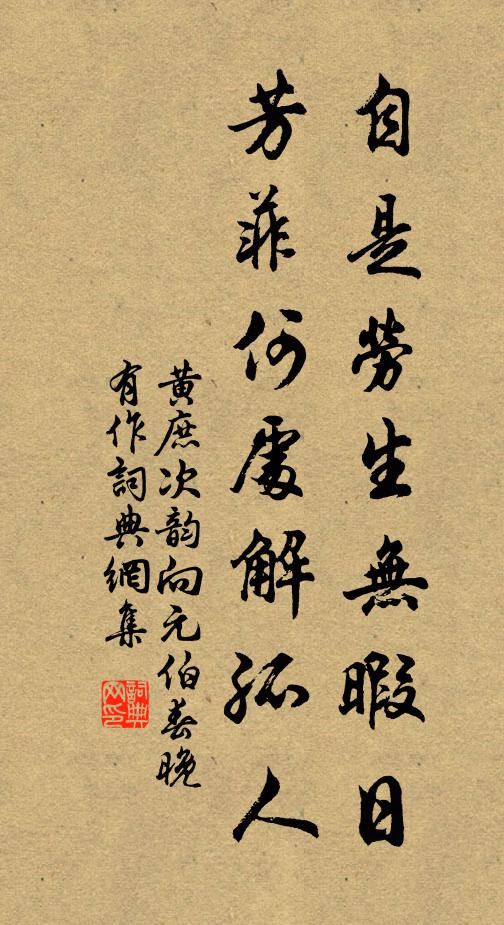 自是勞生無暇日
芳菲何處解孤人
黃庶次韵向元伯春晚
有作詞典網集
詞典
网印